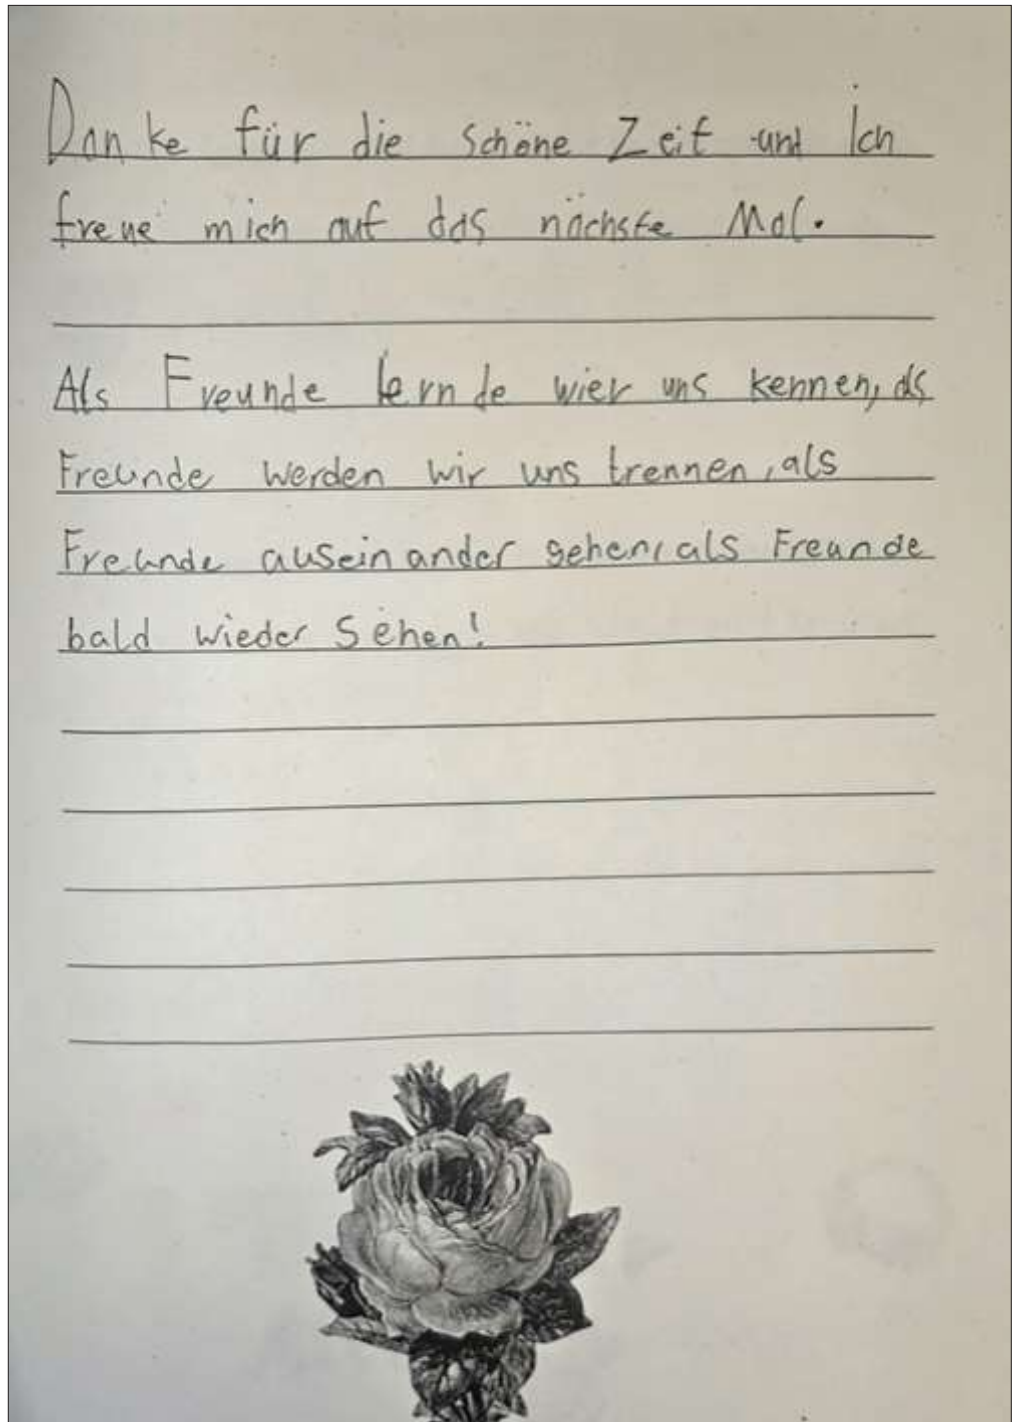 Danke für die schöne Zeit und Ich
freue mich auf das nächste Mal.
Als Freunde lernde wier uns kennen, als
Freunde werden wir uns trennen, als
Freunde auseinander gehen, als Freunde
bald wieder sehen!